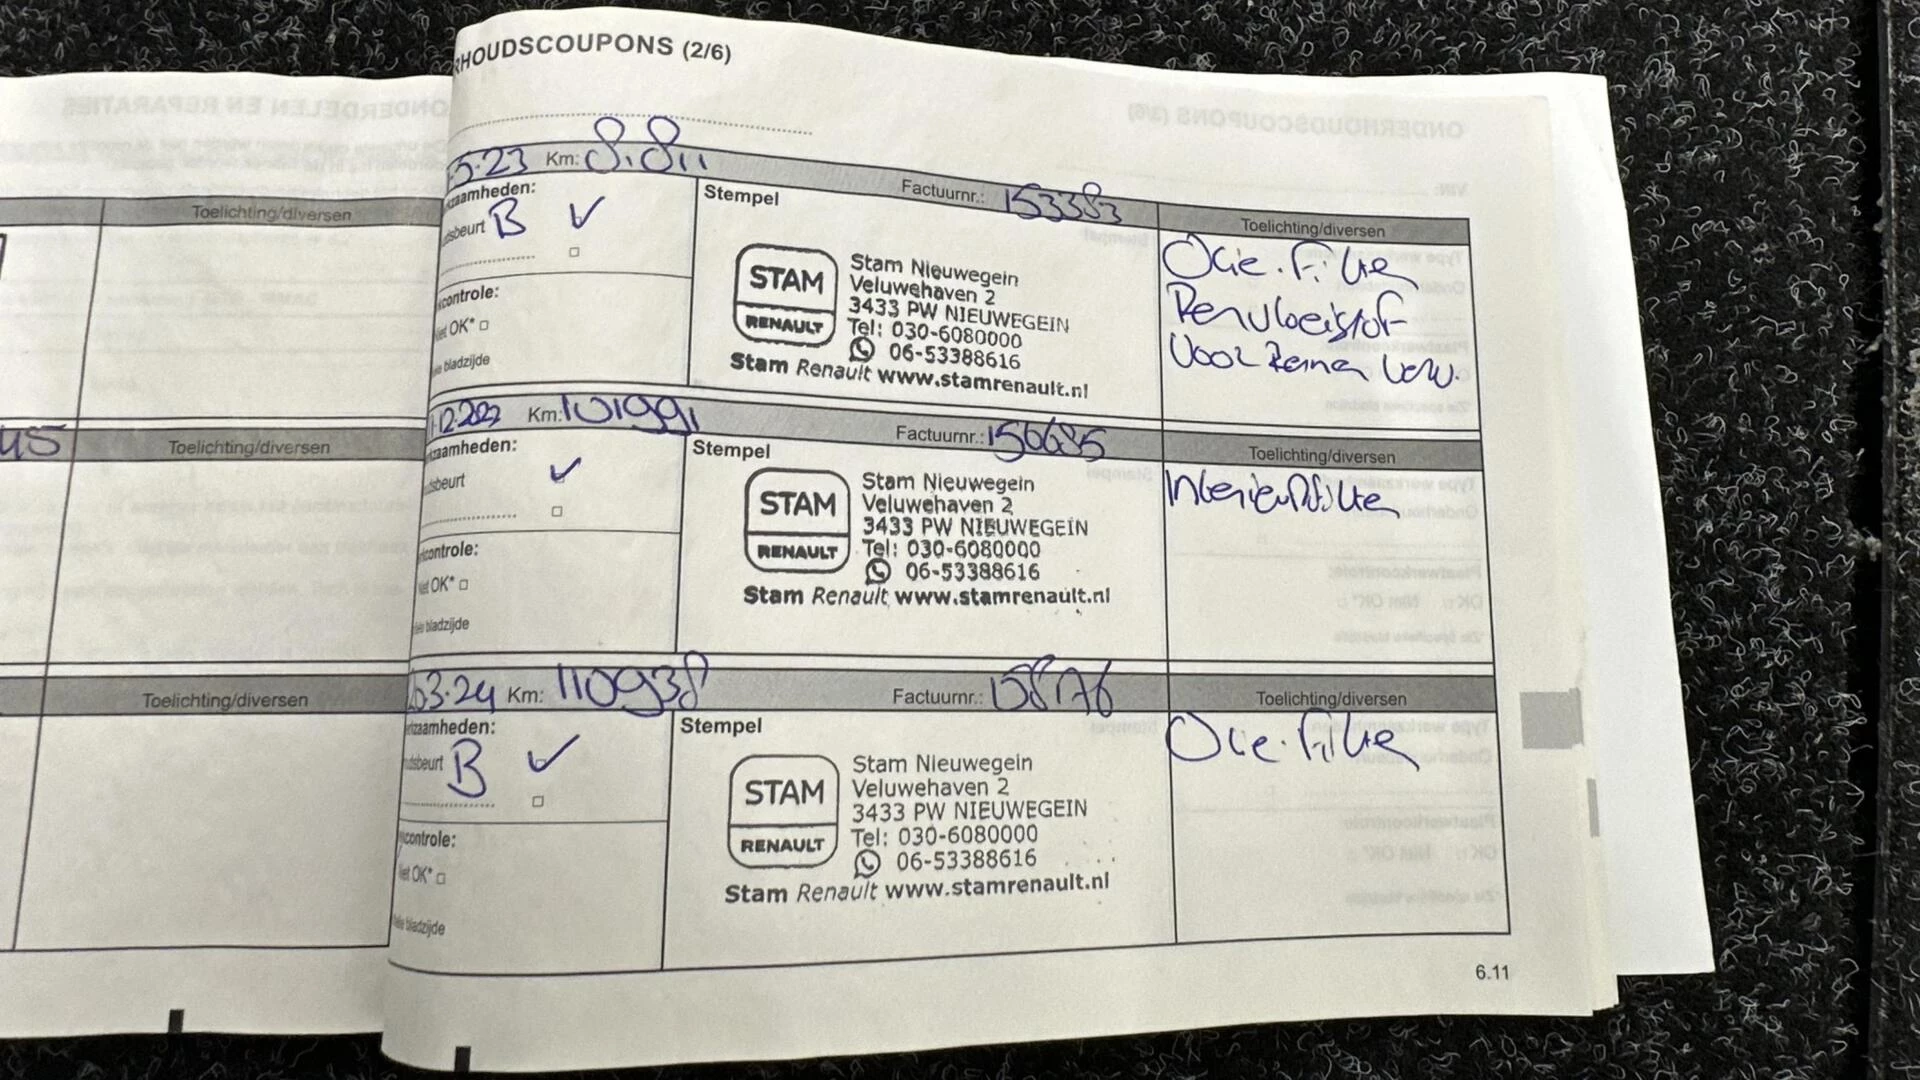 RHOUDSCOUPONS (2/6)
5.23 Km: 81.811
Factuurnr.: 153383
Toelichting/diversen
zaamheden:
dsbeurt B ✓
controle:
Niet OK* □
bladzijde
Stempel
STAM
RENAULT
Stam Nieuwegein
Veluwehaven 2
3433 PW NIEUWEGEIN
Tel: 030-6080000
06-53388616
Stam Renault www.stamrenault.nl
Olie. Filter
Remvloeistof
Voor Remen Verv.
12-2023 Km: 101991
Factuurnr.: 156685
Toelichting/diversen
zaamheden:
dsbeurt ✓
controle:
Niet OK* □
bladzijde
Stempel
STAM
RENAULT
Stam Nieuwegein
Veluwehaven 2
3433 PW NIEUWEGEIN
Tel: 030-6080000
06-53388616
Stam Renault www.stamrenault.nl
Interieurfilter
03-24 Km: 110938
Factuurnr.:
Toelichting/diversen
zaamheden:
dsbeurt B ✓
controle:
Niet OK* □
bladzijde
Stempel
STAM
RENAULT
Stam Nieuwegein
Veluwehaven 2
3433 PW NIEUWEGEIN
Tel: 030-6080000
06-53388616
Stam Renault www.stamrenault.nl
Olie. Filter
6.11
Toelichting/diversen
45 Toelichting/diversen
Toelichting/diversen